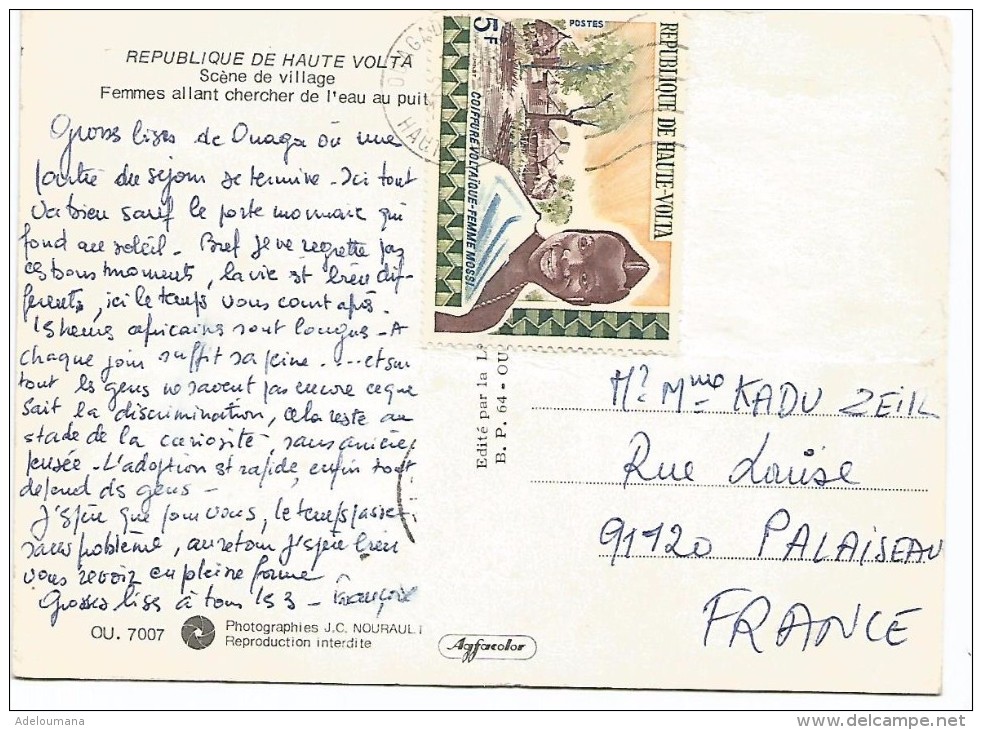 REPUBLIQUE DE HAUTE VOLTA
Scène de village
Femmes allant chercher de l'eau au puit
Grosses bises de Ouaga où une
partie du séjour se termine - Ici tout
va bien sauf le porte monnaie qui
fond au soleil - Bref je ne regrette pas
ces bons moments, la vie est bien dif-
férente, ici le temps vous court après.
Les heures africaines sont longues - A
chaque jour suffit sa peine .... et sur
tout les gens ne savent pas encore ce que
sait la discrimination, cela reste au
stade de la curiosité, sans arrière
pensée - L'adoption est rapide, enfin tout
dépend des gens -
J'espère que pour vous, le temps passe
sans problème, au retour j'espère bien
vous revoir en pleine forme
Grosses bises à tous les 3 - Françoise
OU. 7007
Photographies J.C. NOURAULT
Reproduction interdite
Agfacolor
Edité par la
B. P. 64 - OU
OUAGA
HAU
5F
POSTES
REPUBLIQUE DE HAUTE-VOLTA
COIFFURE VOLTAÏQUE-FEMME MOSSI
Mr Mme KADU ZEIK
Rue Louise
91120 PALAISEAU
FRANCE
Adeloumana
www.delcampe.net